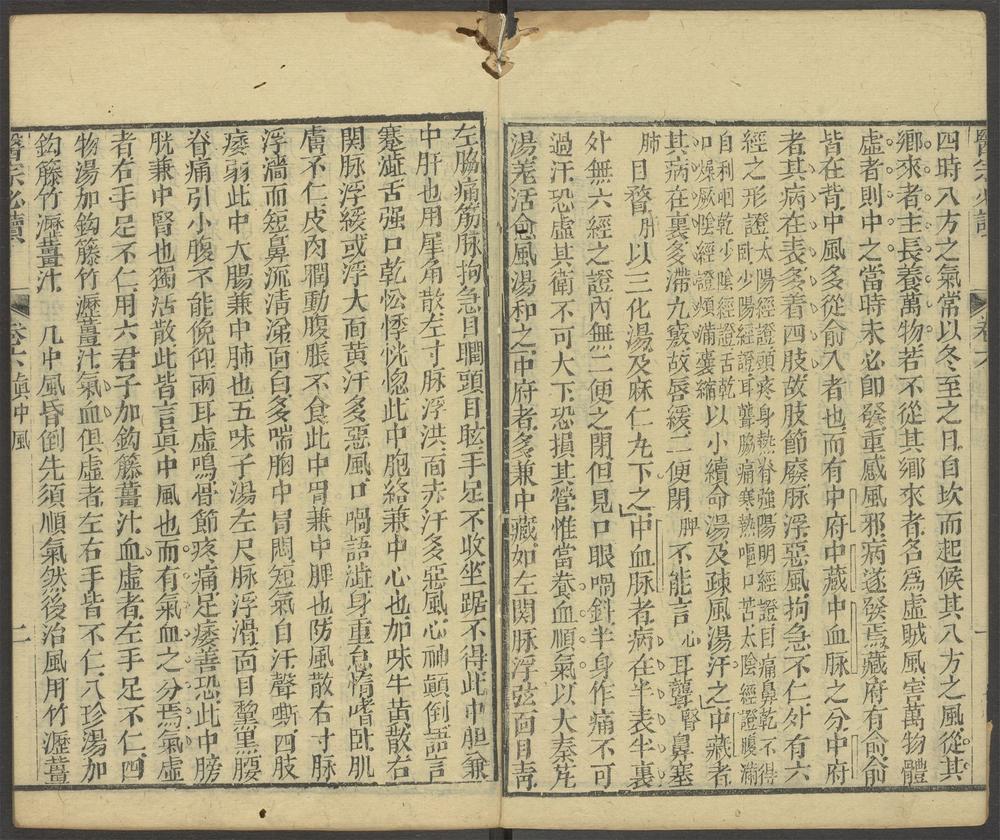 四時八方之氣常以冬至之日自坎而起候其八方之風從其
鄉來者主長養萬物若不從其鄉來者名爲虛賊風害萬物體
虛者則中之當時未必卽發重感風邪病遂發焉藏府有俞俞
皆在背中風多從俞入者也而有中府中藏中血脉之分中府
者其病在表多着四肢故肢節廢脉浮惡風拘急不仁外有六
經之形證太陽經證頭疼身熱脊強陽明經證目痛鼻乾不得
臥少陽經證耳聾脇痛寒熱嘔口苦太陰經證腹滿
自利咽乾少陰經證舌乾
口燥厥陰經證煩滿囊縮以小續命湯及疎風湯汗之中藏者
其病在裏多滯九竅故唇緩二便閉脾不能言心耳聾腎鼻塞
肺目瞀肝以三化湯及麻仁丸下之中血脉者病在半表半裏
外無六經之證內無二便之閉但見口眼喎斜半身作痛不可
過汗恐虛其衛不可大下恐損其營惟當養血順氣以大秦艽
湯羌活愈風湯和之中府者多兼中藏如左關脉浮弦面目靑
左脇痛筋脉拘急目瞤頭目眩手足不收坐踞不得此中胆兼
中肝也用犀角散左寸脉浮洪面赤汗多惡風心神顚倒語言
蹇澁舌强口乾忪悸恍惚此中胞絡兼中心也加味牛黃散右
関脉浮緩或浮大面黃汗多惡風口喎語澁身重怠惰嗜臥肌
膚不仁皮肉瞤動腹脹不食此中胃兼中脾也防風散右寸脉
浮濇而短鼻流清涕面白多喘胸中冒悶短氣自汗聲嘶四肢
痿弱此中大腸兼中肺也五味子湯左尺脉浮滑面目黧黑腰
脊痛引小腹不能俛仰兩耳虛鳴骨節疼痛足痿善恐此中膀
胱兼中腎也獨活散此皆言眞中風也而有氣血之分焉氣虛
者右手足不仁用六君子加鈎籐薑汁血虛者左手足不仁四
物湯加鈎籐竹瀝薑汁氣血俱虛者左右手皆不仁八珍湯加
鈎籐竹瀝薑汁 凡中風昏倒先須順氣然後治風用竹瀝薑
醫宗必讀 卷六眞中風 二